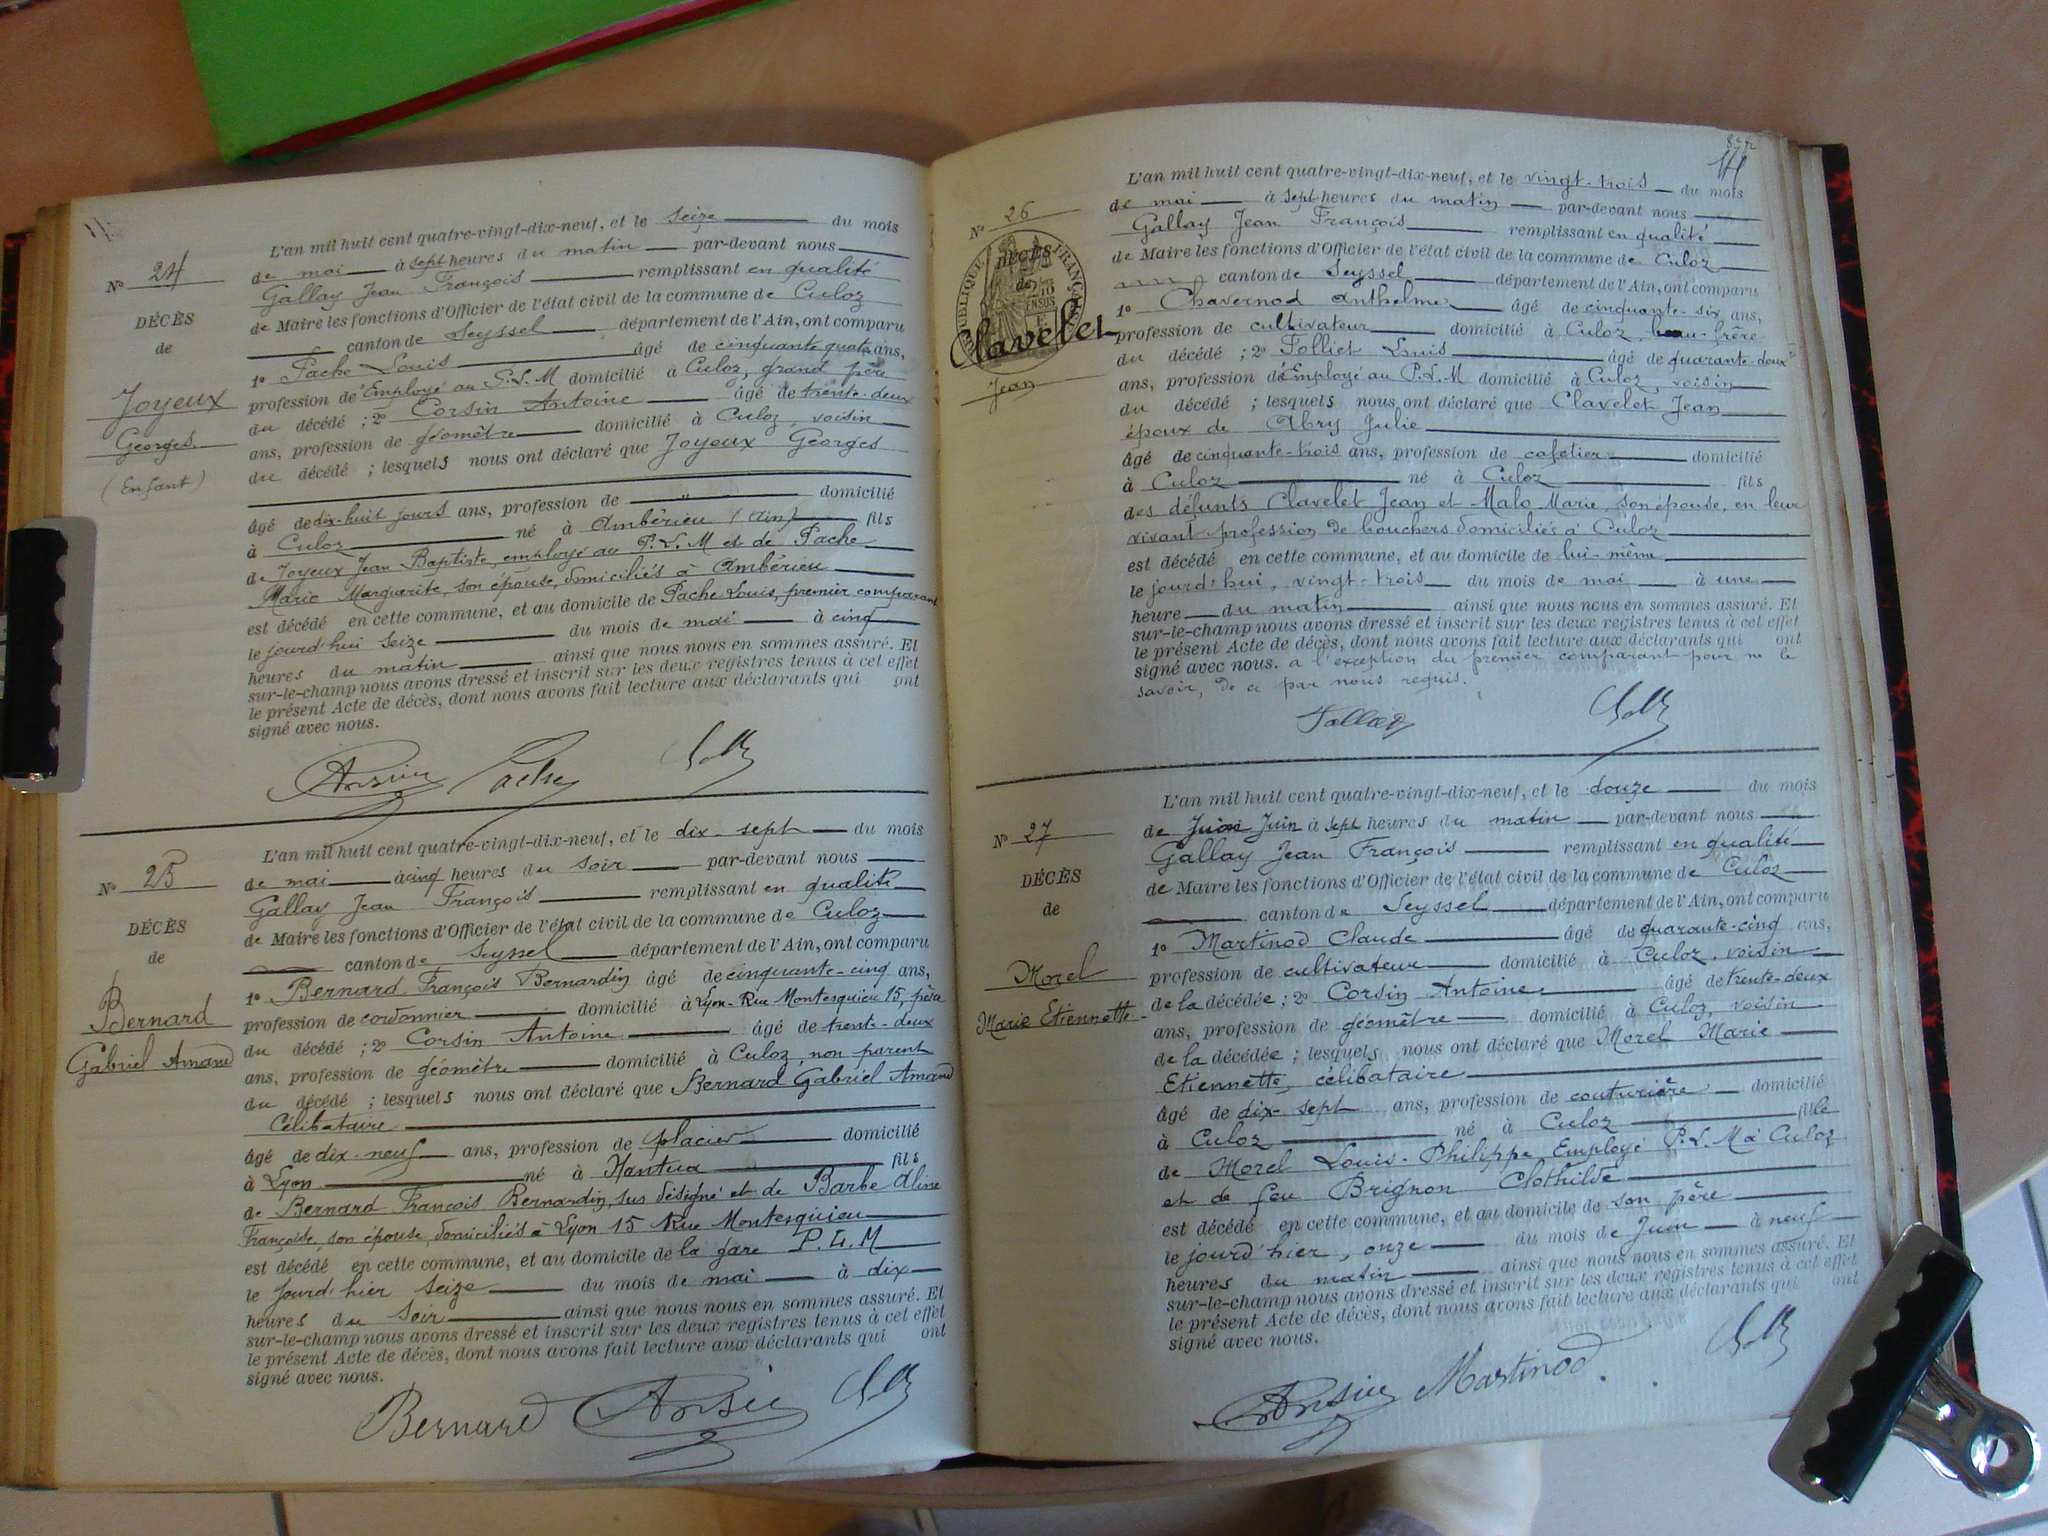 Nº 24
DÉCÈS
de
Joyeux
Georges
(Enfant)
L'an mil huit cent quatre-vingt-dix-neuf, et le seize du mois
de mai à sept heures du matin par-devant nous
Gallay Jean François remplissant en qualité
de Maire les fonctions d'Officier de l'état civil de la commune de Culoz
canton de Seyssel département de l'Ain, ont comparu
1º Pache Louis âgé de cinquante quatre ans,
profession d'Employé au P.L.M domicilié à Culoz, grand père
du décédé ; 2º Corsin Antoine âgé de trente-deux
ans, profession de géomètre domicilié à Culoz, voisin
du décédé ; lesquels nous ont déclaré que Joyeux Georges
âgé de dix-huit jours ans, profession de " domicilié
à Culoz né à Ambérieu (Ain) fils
de Joyeux Jean Baptiste, employé au P.L.M et de Pache
Marie Marguerite, son épouse, domiciliés à Ambérieu
est décédé en cette commune, et au domicile de Pache Louis, premier comparant
le jourd'hui seize du mois de mai à cinq
heures du matin ainsi que nous nous en sommes assuré. Et
sur-le-champ nous avons dressé et inscrit sur les deux registres tenus à cet effet
le présent Acte de décès, dont nous avons fait lecture aux déclarants qui ont
signé avec nous.
Pache
Nº 25
DÉCÈS
de
Bernard
Gabriel Amand
L'an mil huit cent quatre-vingt-dix-neuf, et le dix-sept du mois
de mai à cinq heures du soir par-devant nous
Gallay Jean François remplissant en qualité
de Maire les fonctions d'Officier de l'état civil de la commune de Culoz
canton de Seyssel département de l'Ain, ont comparu
1º Bernard François Bernardin âgé de cinquante-cinq ans,
profession de cordonnier domicilié à Lyon-Rue Montesquieu 15, père
du décédé ; 2º Corsin Antoine âgé de trente-deux
ans, profession de géomètre domicilié à Culoz, non parent
du décédé ; lesquels nous ont déclaré que Bernard Gabriel Amand
Célibataire
âgé de dix-neuf ans, profession de placier domicilié
à Lyon né à Nantua fils
de Bernard François Bernardin, sus désigné et de Barbe Aline
Françoise, son épouse, domiciliés à Lyon 15 Rue Montesquieu
est décédé en cette commune, et au domicile de la gare P.L.M
le jourd'hier seize du mois de mai à dix
heures du soir ainsi que nous nous en sommes assuré. Et
sur-le-champ nous avons dressé et inscrit sur les deux registres tenus à cet effet
le présent Acte de décès, dont nous avons fait lecture aux déclarants qui ont
signé avec nous.
Bernard
Nº 26
DÉCÈS
de
Clavelet
Jean
L'an mil huit cent quatre-vingt-dix-neuf, et le vingt-trois du mois
de mai à sept heures du matin par-devant nous
Gallay Jean François remplissant en qualité
de Maire les fonctions d'Officier de l'état civil de la commune de Culoz
canton de Seyssel département de l'Ain, ont comparu
1º Chavernod Anthelme âgé de cinquante-six ans,
profession de cultivateur domicilié à Culoz, beau-frère
du décédé ; 2º Folliet Louis âgé de quarante-deux
ans, profession d'Employé au P.L.M domicilié à Culoz, voisin
du décédé ; lesquels nous ont déclaré que Clavelet Jean
époux de Abry Julie
âgé de cinquante-trois ans, profession de cafetier domicilié
à Culoz né à Culoz fils
des défunts Clavelet Jean et Malo Marie, son épouse, en leur
vivant profession de bouchers domiciliés à Culoz
est décédé en cette commune, et au domicile de lui-même
le jourd'hui, vingt-trois du mois de mai à une
heure du matin ainsi que nous nous en sommes assuré. Et
sur-le-champ nous avons dressé et inscrit sur les deux registres tenus à cet effet
le présent Acte de décès, dont nous avons fait lecture aux déclarants qui ont
signé avec nous. à l'exception du premier comparant pour ne le
savoir, de ce par nous requis.
Nº 27
DÉCÈS
de
Morel
Marie Etiennette
L'an mil huit cent quatre-vingt-dix-neuf, et le douze du mois
de Juin Juin à sept heures du matin par-devant nous
Gallay Jean François remplissant en qualité
de Maire les fonctions d'Officier de l'état civil de la commune de Culoz
canton de Seyssel département de l'Ain, ont comparu
1º Martinod Claude âgé de quarante-cinq ans,
profession de cultivateur domicilié à Culoz, voisin
de la décédée ; 2º Corsin Antoine âgé de trente-deux
ans, profession de géomètre domicilié à Culoz, voisin
de la décédée ; lesquels nous ont déclaré que Morel Marie
Etiennette, célibataire
âgé de dix-sept ans, profession de couturière domicilié
à Culoz né à Culoz fille
de Morel Louis-Philippe, Employé P.L.M à Culoz
et de feu Brignon Clothilde
est décédé en cette commune, et au domicile de son père
le jourd'hier, onze du mois de Juin à neuf
heures du matin ainsi que nous nous en sommes assuré. Et
sur-le-champ nous avons dressé et inscrit sur les deux registres tenus à cet effet
le présent Acte de décès, dont nous avons fait lecture aux déclarants qui ont
signé avec nous.
Martinod